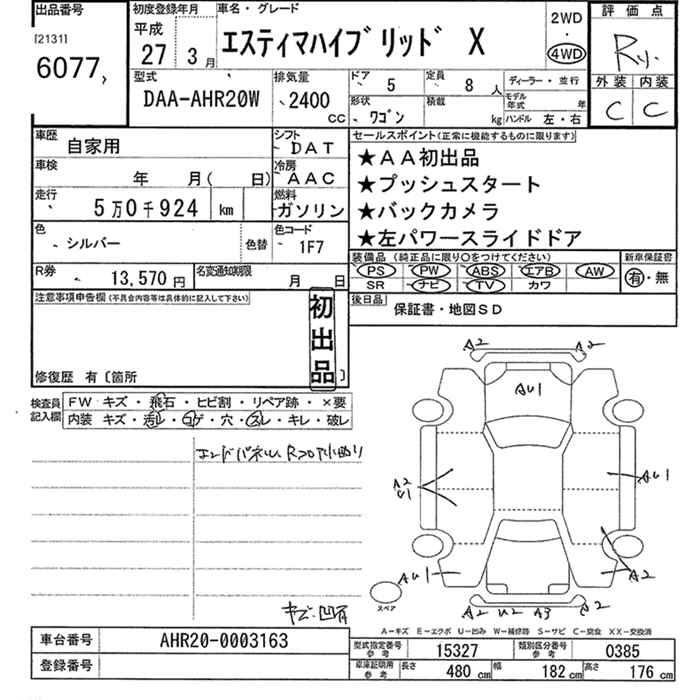 出品番号
[2131]
6077
初度登録年月
平成
27 3月
車名・グレード
エスティマハイブリッド X
2WD
・
4WD
評価点
R
外装 内装
C C
型式
DAA-AHR20W
排気量
2400
CC
ドア 5
定員 8 人
形状 ワゴン
積載 kg
ディーラー・並行
モデル年式 年
ハンドル 左・右
車歴 自家用
シフト DAT
車検 年 月( 日)
冷房 AAC
走行 5万0千924 km
燃料 ガソリン
色 シルバー
色替
色コード 1F7
R券 13,570円
名変通知期限 月 日
セールスポイント(正常に機能するものに限ります)
★AA初出品
★プッシュスタート
★バックカメラ
★左パワースライドドア
装備品 (純正品に限り○をつけてください)
PS PW ABS エアB AW
SR ナビ TV カワ
新車保証書
有・無
後日品
保証書・地図SD
注意事項申告欄(不具合内容等は具体的に記入して下さい)
初出品
修復歴 有〔箇所 〕
検査員記入欄
FW キズ・飛石・ヒビ割・リペア跡・×要
内装 キズ・汚レ・コゲ・穴・スレ・キレ・破レ
エンドパネル
キズ・凹有
A2 A2
AU1
A2
U1
AU1
AU1
A2
スペア
A2 U2 A3 A2
A-キズ E-エクボ U-凹み W-補修跡 S-サビ C-腐食 XX-交換済
車台番号 AHR20-0003163
登録番号
型式指定番号参考 15327
類別区分番号参考 0385
車庫証明用参考 長さ 480cm 幅 182cm 高さ 176cm